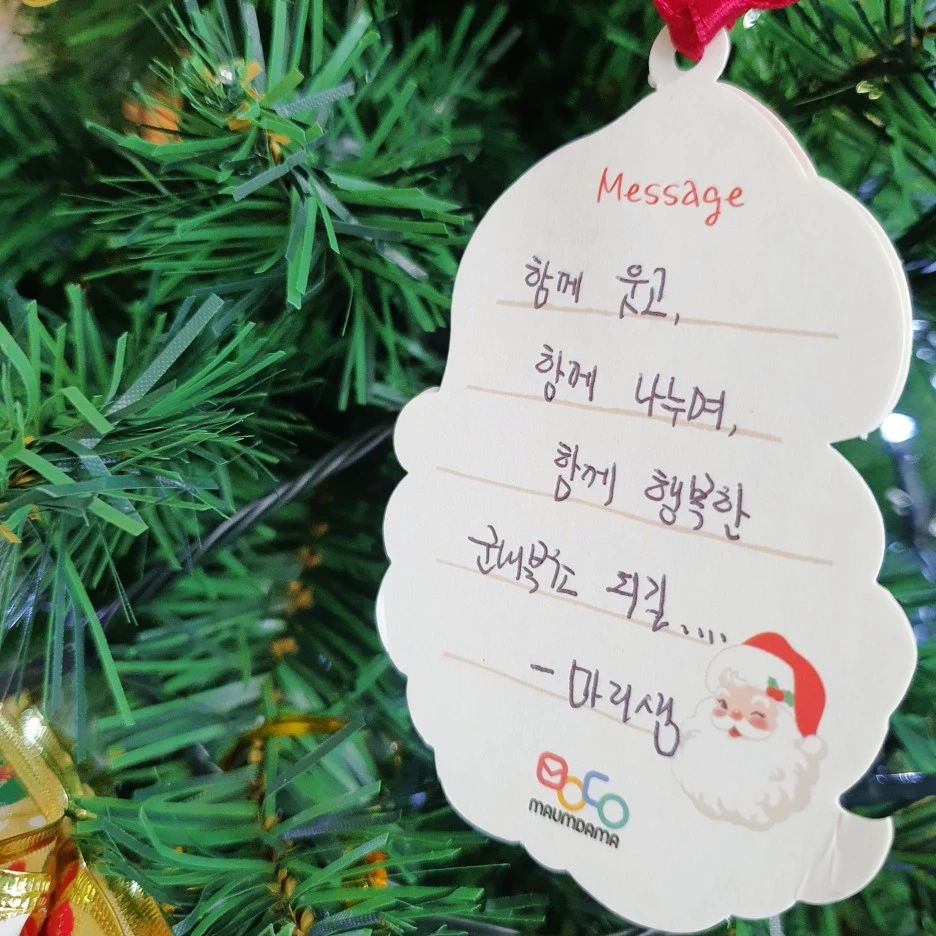 Message
함께 웃고,
함께 나누며,
함께 행복한
군내북초 되길....
- 마리샘
MAUMDAMA